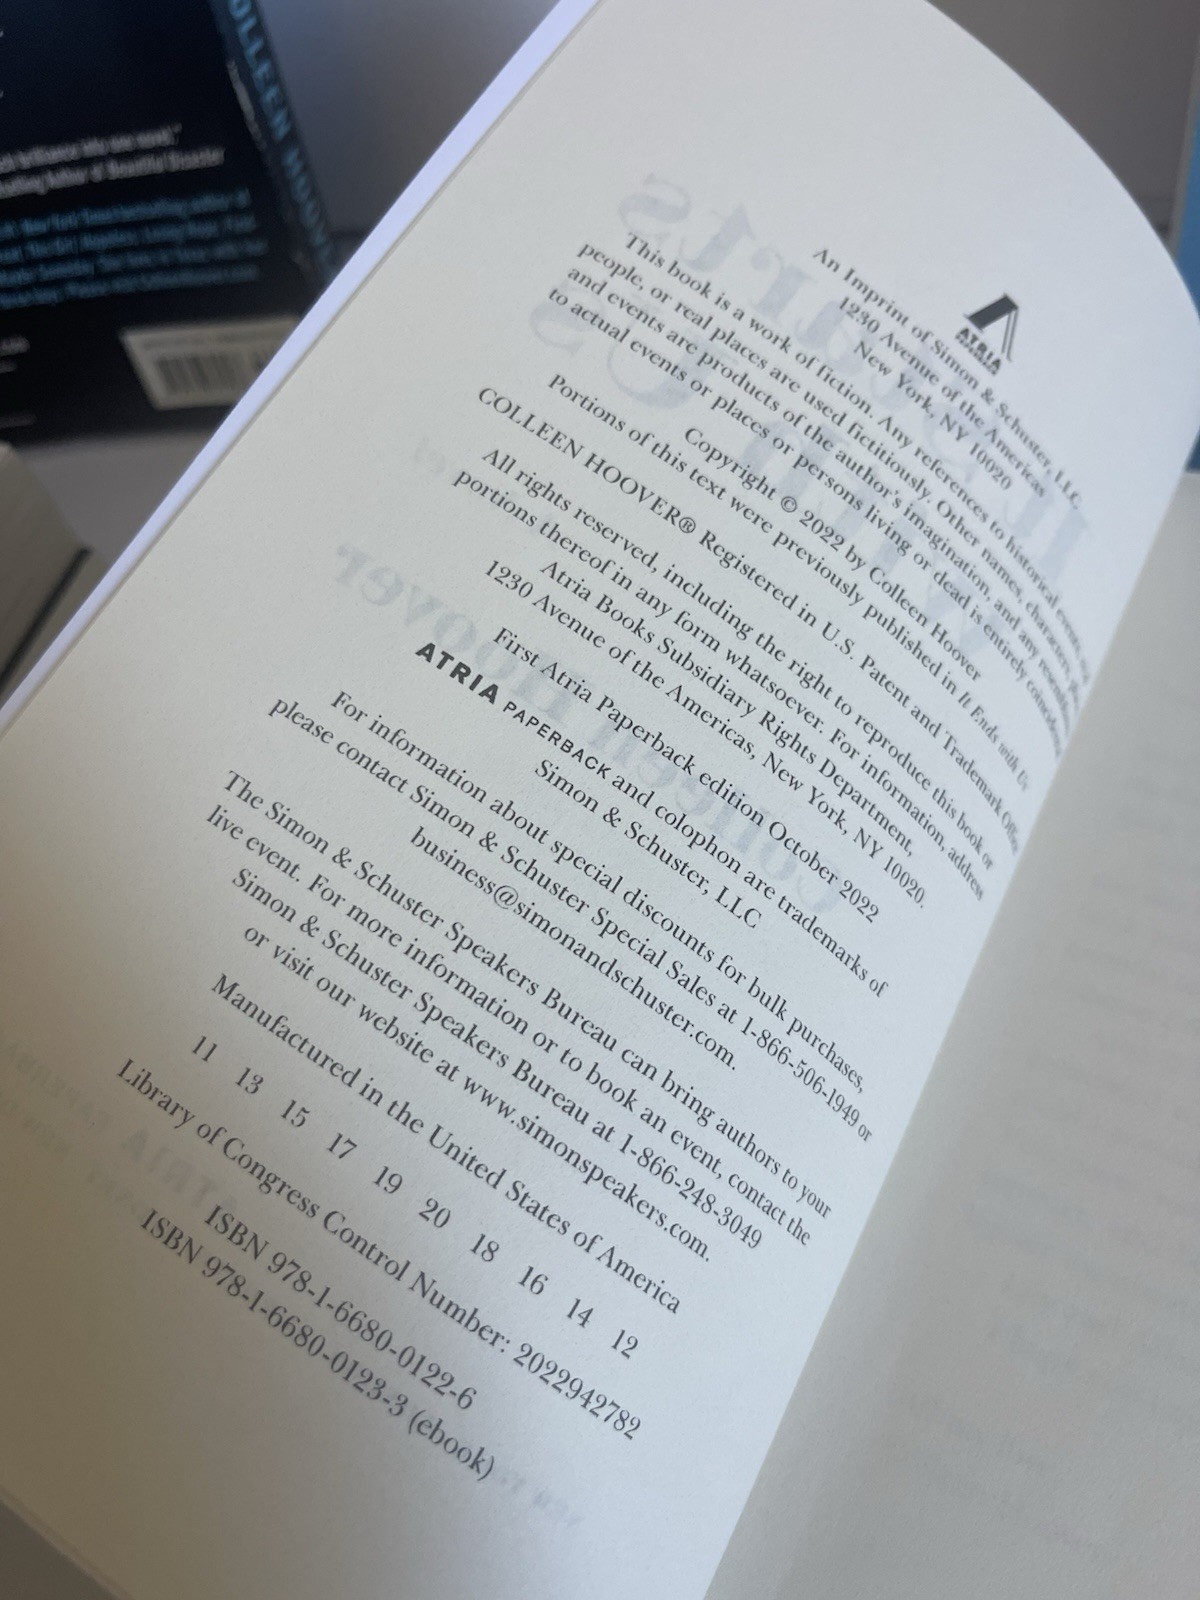 OLLEEN HOOVE
brilliance into one novel."
author of Beautiful Disaster
ATRIA
PAPERBACK
An Imprint of Simon & Schuster, LLC
1230 Avenue of the Americas
New York, NY 10020
This book is a work of fiction. Any references to historical events, real
people, or real places are used fictitiously. Other names, characters, places,
and events are products of the author's imagination, and any resemblance
to actual events or places or persons living or dead is entirely coincidental.
Copyright © 2022 by Colleen Hoover
Portions of this text were previously published in It Ends with Us
COLLEEN HOOVER® Registered in U.S. Patent and Trademark Office
All rights reserved, including the right to reproduce this book or
portions thereof in any form whatsoever. For information, address
Atria Books Subsidiary Rights Department,
1230 Avenue of the Americas, New York, NY 10020.
First Atria Paperback edition October 2022
ATRIA PAPERBACK and colophon are trademarks of
Simon & Schuster, LLC
For information about special discounts for bulk purchases,
please contact Simon & Schuster Special Sales at 1-866-506-1949 or
business@simonandschuster.com.
The Simon & Schuster Speakers Bureau can bring authors to your
live event. For more information or to book an event, contact the
Simon & Schuster Speakers Bureau at 1-866-248-3049
or visit our website at www.simonspeakers.com.
Manufactured in the United States of America
11 13 15 17 19 20 18 16 14 12
Library of Congress Control Number: 2022942782
ISBN 978-1-6680-0122-6
ISBN 978-1-6680-0123-3 (ebook)